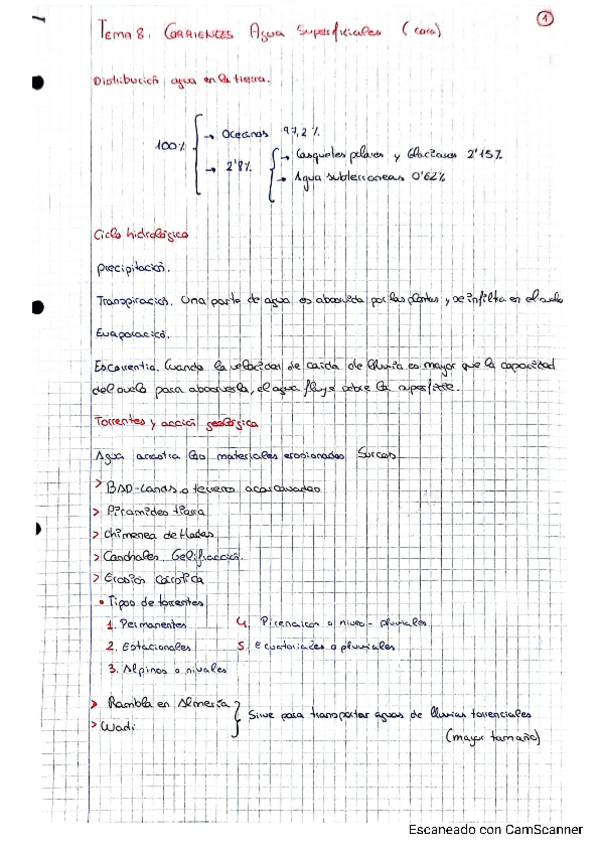 1
Tema 8. CORRIENTES Agua Superficiales (cara)
Distribución agua en la tierra.
100% → Oceanos 97,2%
→ 2'8% → Casquetes polares y Glaciares 2'15%
→ Agua subterraneas 0'62%
Ciclo hidrológico
Precipitación.
Transpiración. Una parte de agua es absorvida por las plantas, y se infiltra en el suelo
Evaporación.
Escorrentia. Cuando la velocidad de caida de lluvia es mayor que la capacidad
del suelo para absorverla, el agua fluye sobre la superficie.
Torrentes y acción geológica
Agua arrastra los materiales erosionados Surcos
> BAD-Lands o terreno acarcavado
> Piramides tierra
> Chimenea de Hadas
> Canchales Gelifracción.
> Erosión Cárstica
• Tipos de torrentes
1. Permanentes 4. Pirenaicos o nivo-pluviales
2. Estacionales 5. Ecuatoriales o pluviales
3. Alpinos o nivales
> Rambla en Almería
> Wadi
Sirve para transportar aguas de lluvias torrenciales
(mayor tamaño)
Escaneado con CamScanner